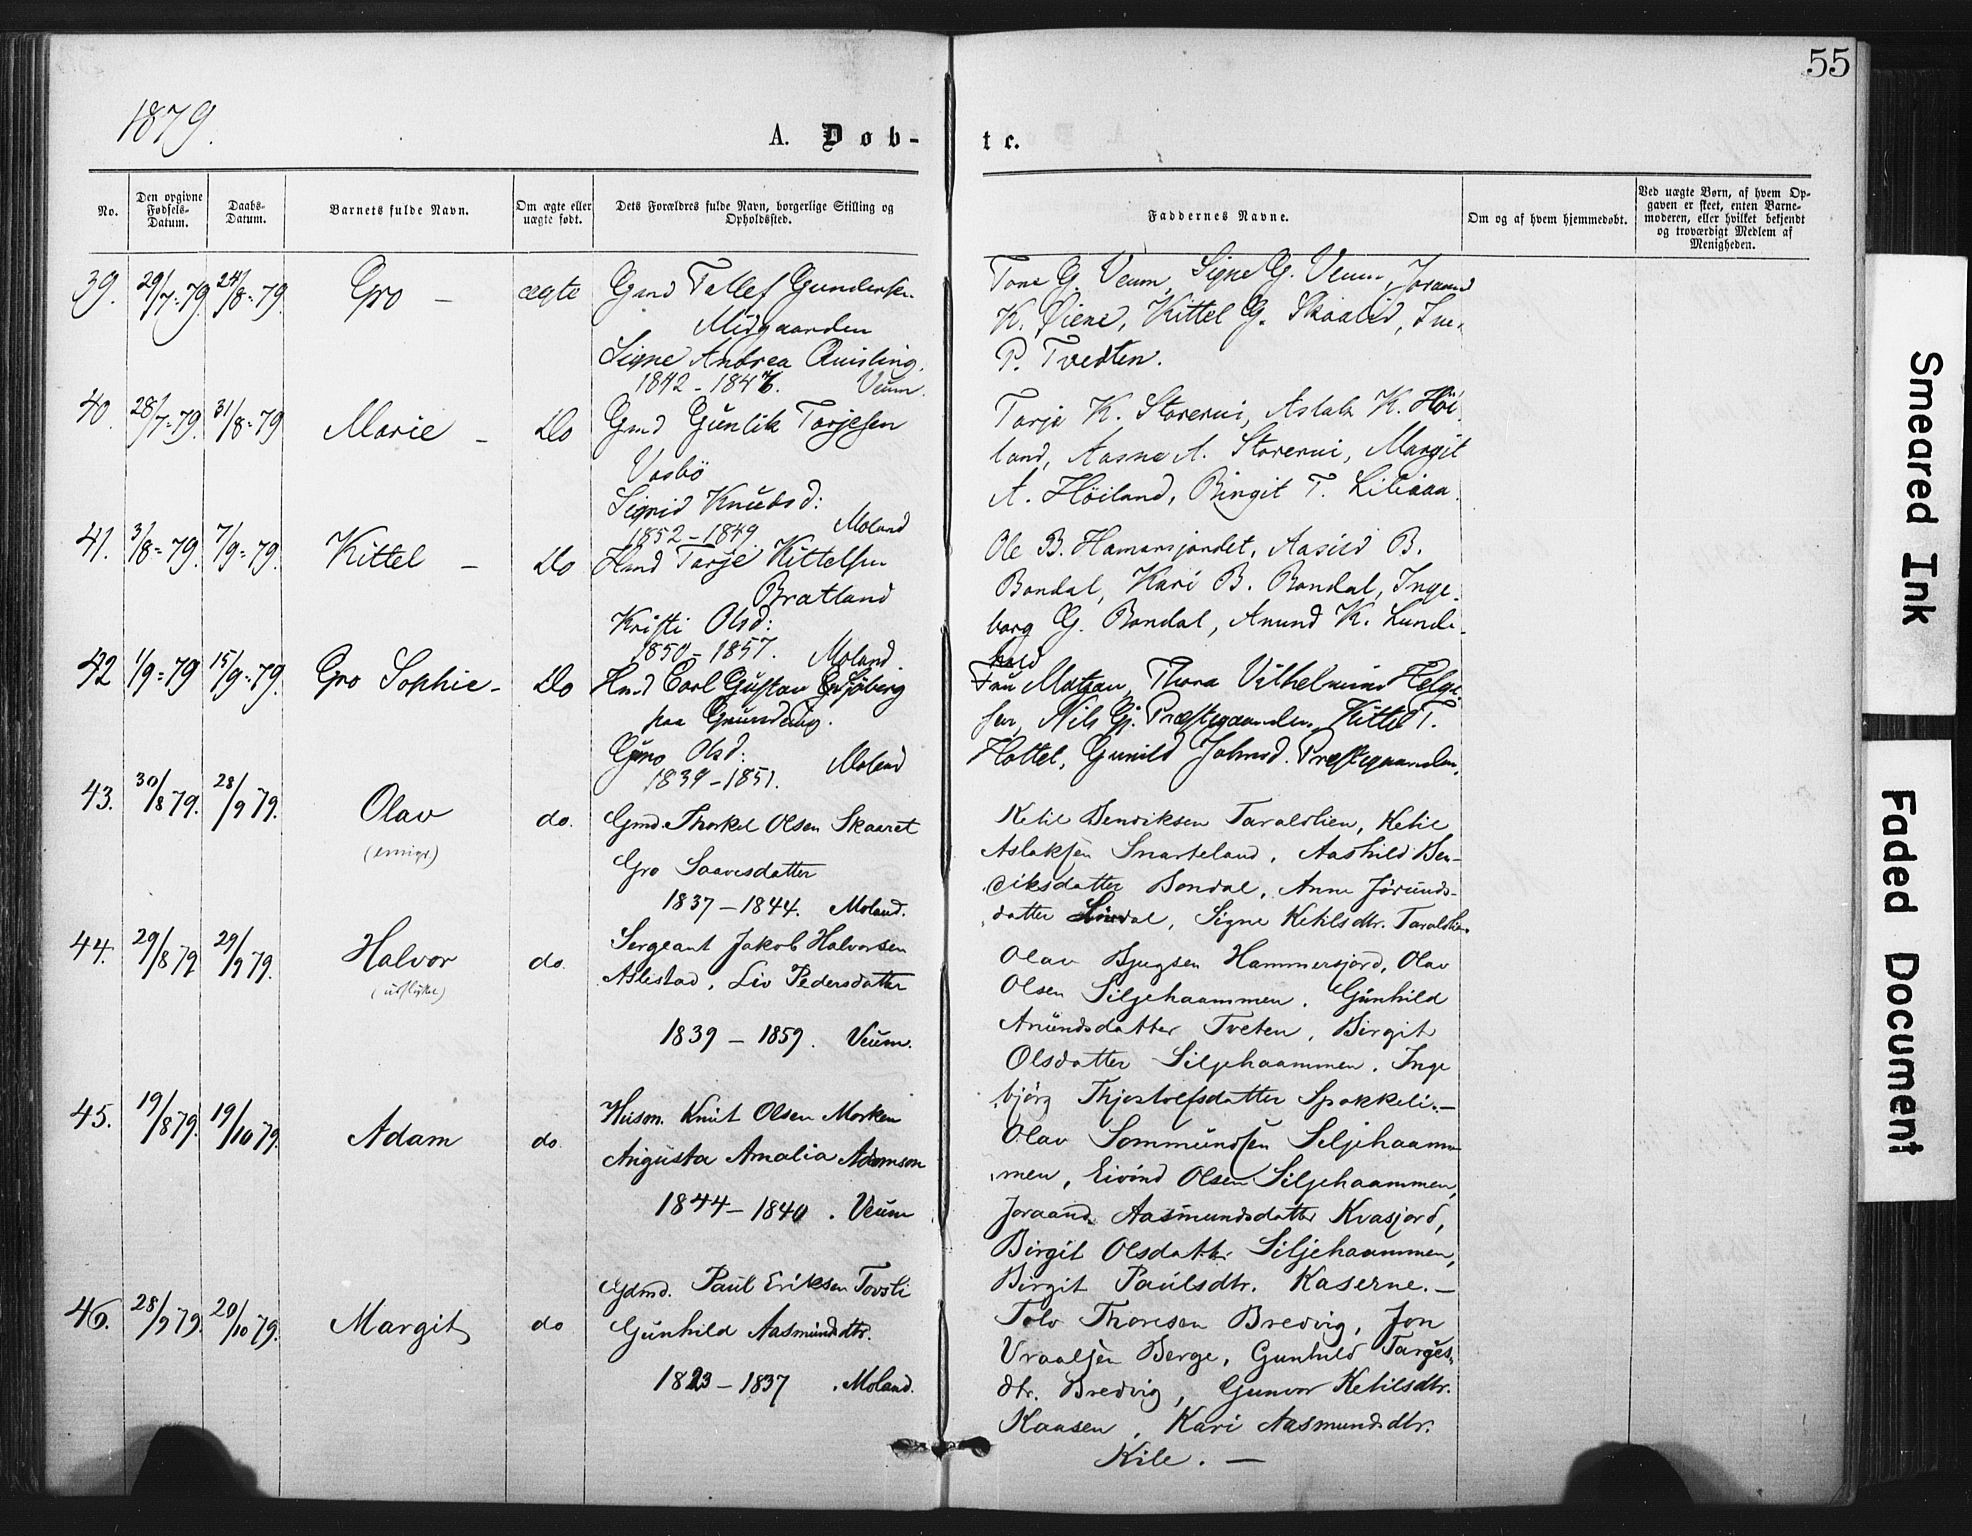 55
1879.
A. Døb-
te.
No.
Den opgivne Fødsels-Datum.
Daabs-Datum.
Barnets fulde Navn.
Om ægte eller uægte født.
Dets Forældres fulde Navn, borgerlige Stilling og Opholdssted.
Faddernes Navne.
Om og af hvem hjemmedøbt.
Ved uægte Børn, af hvem Opgaven er skeet, enten Barnemoderen, eller hvilket bekjendt og troværdigt Medlem af Menigheden.
39. 29/7=79. 24/8=79. Gro – ægte Gmd Tellef Gundersen
Midgaarden
Signe Andrea Quisling.
1842 - 1847. Veum.
Tone G. Veum, Signe G. Veum, Joraand
K. Øiene, Kittel G. Skaalid,
P. Tvedten.
40. 28/7=79. 31/8=79 Marie – Do Gmd Gunlik Torjesen
Vasbö
Sigrid Knutsd:
1852 - 1849. Moland
Torje K. Storerui, Aslak K. Höi
land, Aasne A. Storerui, Margit
A. Höiland, Bingit T.
41. 3/8=79. 7/9=79. Kittel – Do Hmd Tarje Kittelsen
Bratland
Kristi Olsd:
1850 - 1857. Moland.
Ole B. Hamarsjordet, Aasild B.
Bondal, Kari B. Bondal, Inge-
borg G. Bondal, Anund K. Lunde-
kold
42 1/9=79 15/9=79. Gro Sophie – Do Hmd Carl Gustav Sjöberg
paa Grundang.
Guro Olsd:
1839 - 1851. Moland
Fru Matzau, Thora Vilhelmine Helge
sen, Nils Gj. Præstegaarden, Kittel T.
Hottel, Gunild Johnsd. Præstegaarden.
43. 30/8 79. 28/9 79. Olav do. Gmd. Thorkel Olsen Skaaret
(emigr)
Gro Saavesdatter
1837 – 1844. Moland.
Ketil Bendiksen Taraldlien, Ketil
Aslaksen Snarteland, Aashild Ben-
diksdatter Bondal, Anne Jörunds-
datter Lindal, Signe Ketilsdtr. Taraldlien
44. 29/8 79 29/9 79. Halvor do. Sergeant Jakob Halvorsen
(utflyttet)
Aslestad, Liv Pedersdatter
1839 – 1859. Veum.
Olav Bjugsen Hammersjord, Olav
Olsen Siljehaammen, Gunhild
Anundsdatter Tveten, Birgit
Olsdatter Siljehaammen, Inge
björg Thjostolfsdatter Spokkeli. –
45. 19/8 79. 19/10 79. Adam do. Husm. Knut Olsen Morken
Augusta Amalia Adamson
1844 – 1840. Veum
Olav Sommundsen Siljehaam-
men, Eivind Olsen Siljehaammen,
Joraand Aasmundsdatter Kvasjord,
Birgit Olsdatter Siljehaammen,
Birgit Paulsdtr. Kaserne. –
46. 28/9 79. 20/10 79. Margit do Gdmd. Paul Eriksen Tovsli
Gunhild Aasmundsdtr.
1823 – 1837 Moland.
Tolv Thoresen Bredvig, Jon
Vraalsen Berge, Gunhild Targes-
dtr. Bredvig, Gunvor Ketilsdtr.
Kaasen, Kari Aasmundsdtr.
Kile. –
Smeared Ink
Faded Document